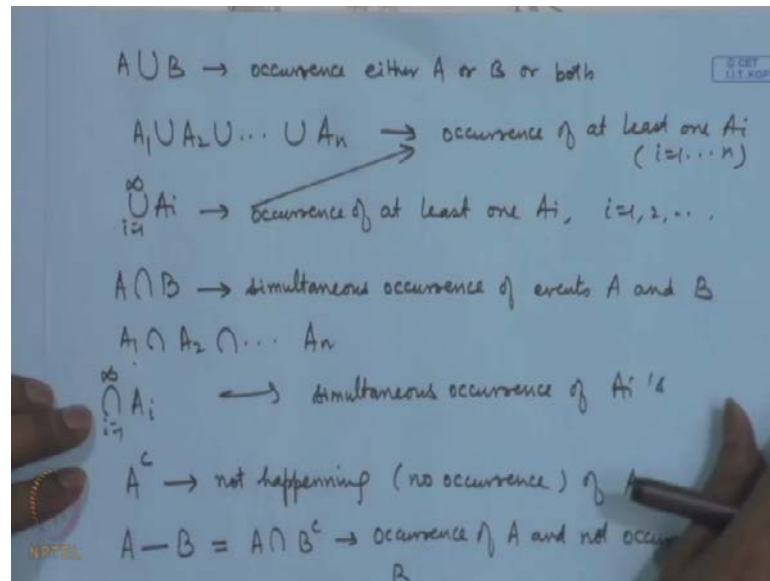 A ∪ B → occurrence either A or B or both
© CET
I.I.T. KGP
A₁ ∪ A₂ ∪ ... ∪ Aₙ → occurrence of at least one Ai
(i=1...n)
∞
∪ Ai → occurrence of at least one Ai, i=1, 2, ...
i=1
A ∩ B → simultaneous occurrence of events A and B
A₁ ∩ A₂ ∩ ... Aₙ
∞
∩ Ai ↔ simultaneous occurrence of Ai's
i=1
Aᶜ → not happenning (no occurrence) of A
A — B = A ∩ Bᶜ → occurrence of A and not occur
B
NPTEL